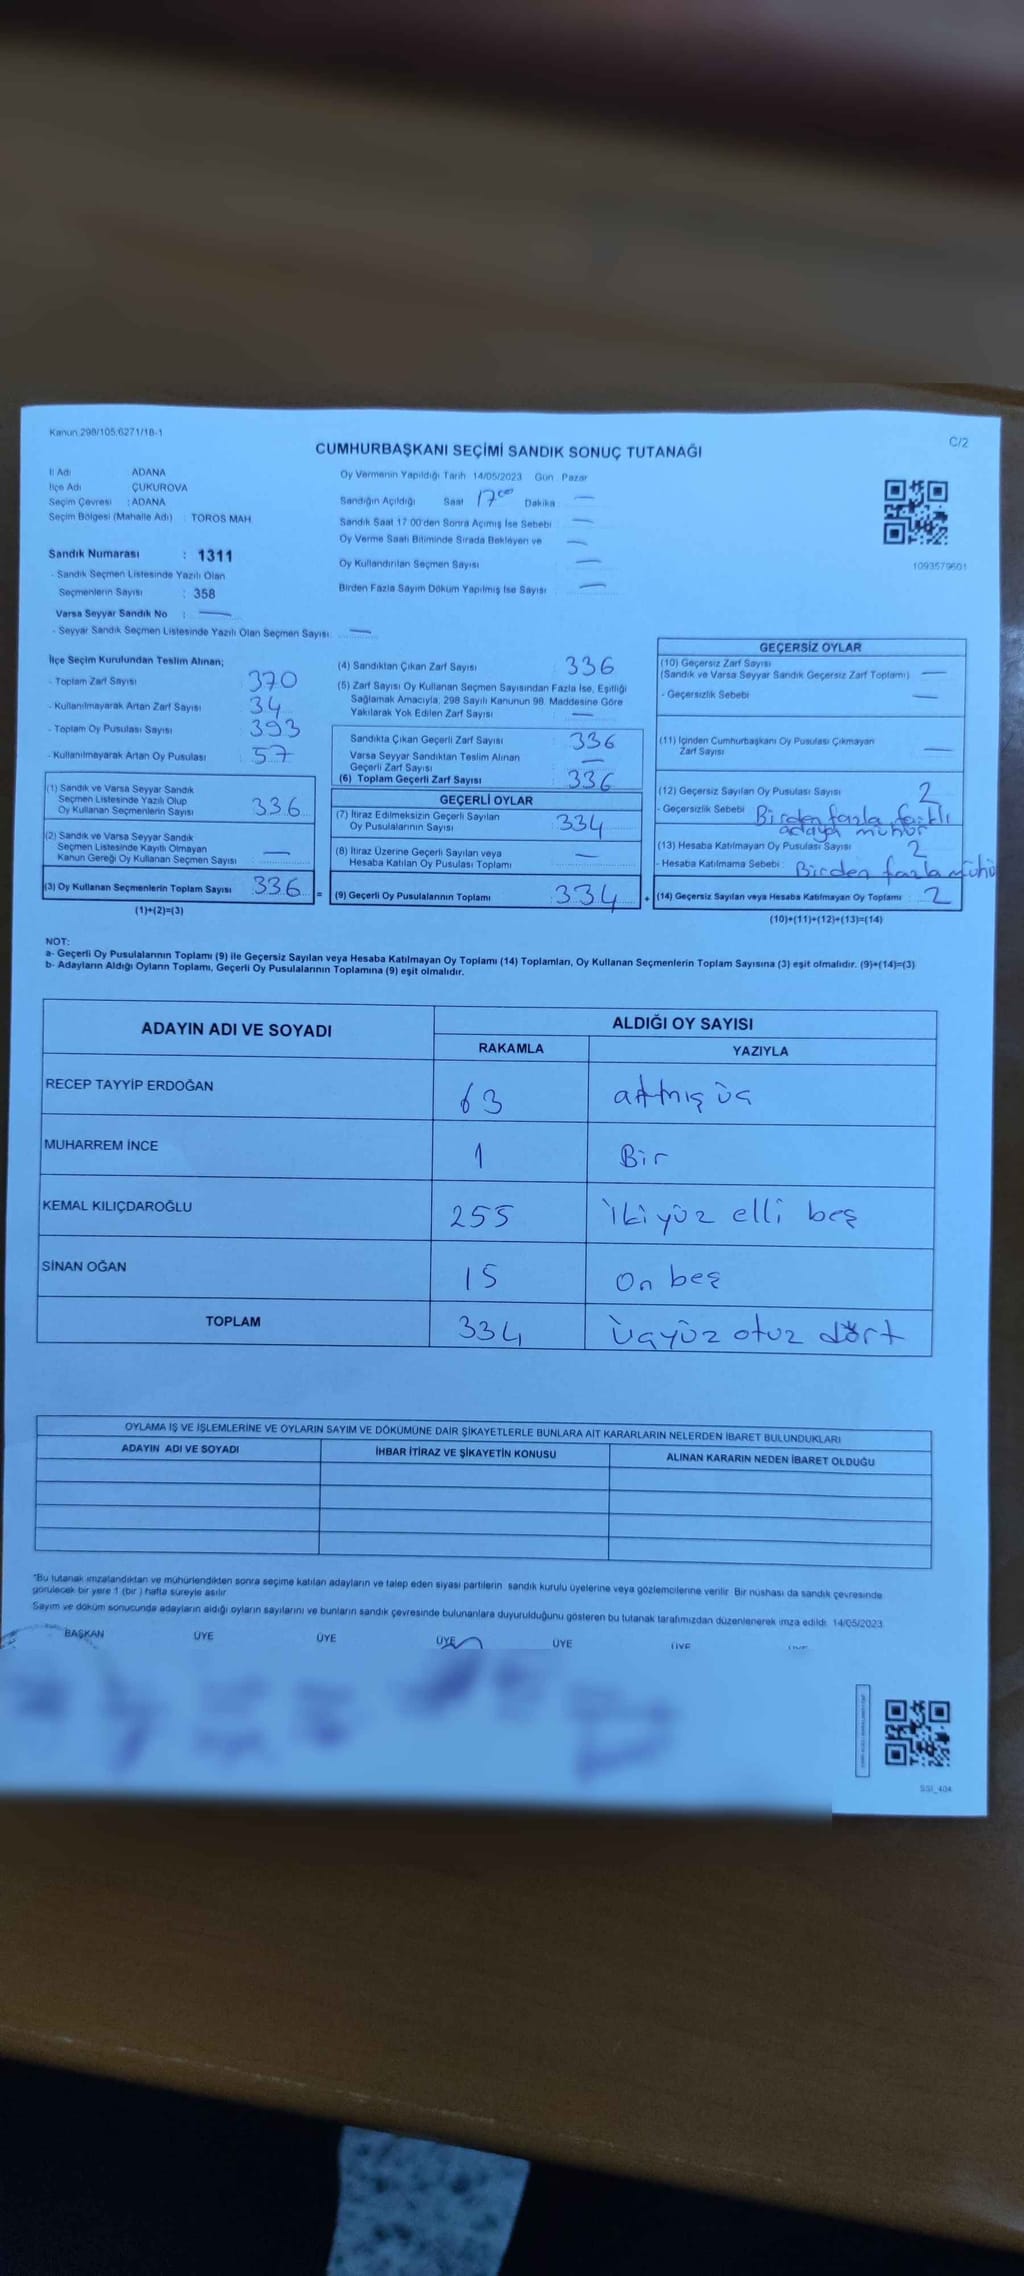 Kanun 298/105;6271/18-1
C/2
CUMHURBAŞKANI SEÇİMİ SANDIK SONUÇ TUTANAĞI
İl Adı ADANA
İlçe Adı ÇUKUROVA
Seçim Çevresi : ADANA
Seçim Bölgesi (Mahalle Adı) : TOROS MAH.
Sandık Numarası : 1311
- Sandık Seçmen Listesinde Yazılı Olan
Seçmenlerin Sayısı : 358
Varsa Seyyar Sandık No : —
- Seyyar Sandık Seçmen Listesinde Yazılı Olan Seçmen Sayısı: —
Oy Vermenin Yapıldığı Tarih 14/05/2023 Gün Pazar
Sandığın Açıldığı Saat 17⁰⁰ Dakika —
Sandık Saat 17 00'den Sonra Açımış İse Sebebi —
Oy Verme Saati Bitiminde Sırada Bekleyen ve —
Oy Kullandırılan Seçmen Sayısı —
Birden Fazla Sayım Döküm Yapılmış İse Sayısı —
1093579601
İlçe Seçim Kurulundan Teslim Alınan;
- Toplam Zarf Sayısı 370
- Kullanılmayarak Artan Zarf Sayısı 34
- Toplam Oy Pusulası Sayısı 393
- Kullanılmayarak Artan Oy Pusulası 57
(1) Sandık ve Varsa Seyyar Sandık
Seçmen Listesinde Yazılı Olup
Oy Kullanan Seçmenlerin Sayısı 336
(2) Sandık ve Varsa Seyyar Sandık
Seçmen Listesinde Kayıtlı Olmayan
Kanun Gereği Oy Kullanan Seçmen Sayısı —
(3) Oy Kullanan Seçmenlerin Toplam Sayısı 336 =
(1)+(2)=(3)
(4) Sandıktan Çıkan Zarf Sayısı : 336
(5) Zarf Sayısı Oy Kullanan Seçmen Sayısından Fazla İse, Eşitliği
Sağlamak Amacıyla, 298 Sayılı Kanunun 98. Maddesine Göre
Yakılarak Yok Edilen Zarf Sayısı —
Sandıkta Çıkan Geçerli Zarf Sayısı : 336
Varsa Seyyar Sandıktan Teslim Alınan
Geçerli Zarf Sayısı —
(6) Toplam Geçerli Zarf Sayısı 336
GEÇERLİ OYLAR
(7) İtiraz Edilmeksizin Geçerli Sayılan
Oy Pusulalarının Sayısı : 334
(8) İtiraz Üzerine Geçerli Sayılan veya
Hesaba Katılan Oy Pusulası Toplamı —
(9) Geçerli Oy Pusulalarının Toplamı 334 +
GEÇERSİZ OYLAR
(10) Geçersiz Zarf Sayısı
(Sandık ve Varsa Seyyar Sandık Geçersiz Zarf Toplamı) —
- Geçersizlik Sebebi —
(11) İçinden Cumhurbaşkanı Oy Pusulası Çıkmayan
Zarf Sayısı —
(12) Geçersiz Sayılan Oy Pusulası Sayısı 2
- Geçersizlik Sebebi Birden fazla farklı
adaya mühür
(13) Hesaba Katılmayan Oy Pusulası Sayısı 2
- Hesaba Katılmama Sebebi : Birden fazla mühü
(14) Geçersiz Sayılan veya Hesaba Katılmayan Oy Toplamı 2
(10)+(11)+(12)+(13)=(14)
NOT:
a- Geçerli Oy Pusulalarının Toplamı (9) ile Geçersiz Sayılan veya Hesaba Katılmayan Oy Toplamı (14) Toplamları, Oy Kullanan Seçmenlerin Toplam Sayısına (3) eşit olmalıdır. (9)+(14)=(3)
b- Adayların Aldığı Oyların Toplamı, Geçerli Oy Pusulalarının Toplamına (9) eşit olmalıdır.
ADAYIN ADI VE SOYADI ALDIĞI OY SAYISI
RAKAMLA YAZIYLA
RECEP TAYYİP ERDOĞAN 63 altmış üç
MUHARREM İNCE 1 Bir
KEMAL KILIÇDAROĞLU 255 İki yüz elli beş
SİNAN OĞAN 15 On beş
TOPLAM 334 üçyüz otuz dört
OYLAMA İŞ VE İŞLEMLERİNE VE OYLARIN SAYIM VE DÖKÜMÜNE DAİR ŞİKAYETLERLE BUNLARA AİT KARARLARIN NELERDEN İBARET BULUNDUKLARI
ADAYIN ADI VE SOYADI İHBAR İTİRAZ VE ŞİKAYETİN KONUSU ALINAN KARARIN NEDEN İBARET OLDUĞU
*Bu tutanak imzalandıktan ve mühürlendikten sonra seçime katılan adayların ve talep eden siyasi partilerin sandık kurulu üyelerine veya gözlemcilerine verilir. Bir nüshası da sandık çevresinde
görülecek bir yere 1 (bir) hafta süreyle asılır.
Sayım ve döküm sonucunda adayların aldığı oyların sayılarını ve bunların sandık çevresinde bulunanlara duyurulduğunu gösteren bu tutanak tarafımızdan düzenlenerek imza edildi. 14/05/2023
BAŞKAN ÜYE ÜYE ÜYE ÜYE ÜYE ÜYE
SSI_404